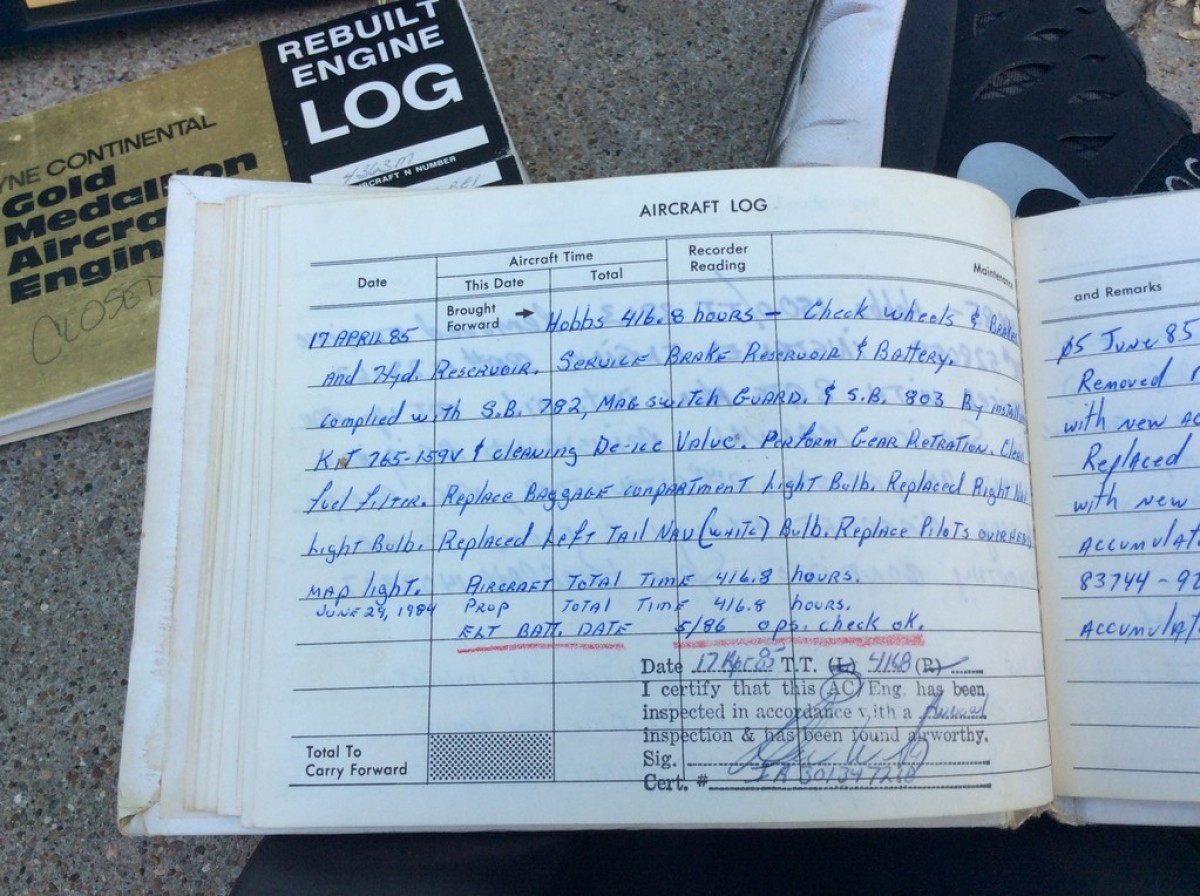 REBUILT
ENGINE
LOG
4363M
AIRCRAFT N NUMBER
YNE CONTINENTAL
Gold
Medallion
Aircra
Engin
CLOSED
AIRCRAFT LOG
Date
Aircraft Time
This Date
Total
Recorder
Reading
Maintenan
Brought
Forward
17 APRIL 85 Hobbs 416.8 hours - Check wheels & Brakes
And Hyd. Reservoir. Service Brake Reservoir & Battery.
complied with S.B. 782, Mag switch Guard. & S.B. 803 By install
Kit 765-159V & cleaning De-ice Valve. Perform Gear Retration. Clean
fuel filter. Replace Baggage compartment Light Bulb. Replaced Right Nav
Light Bulb. Replaced Left Tail Nav (white) Bulb. Replace Pilots overhead
map light. Aircraft Total Time 416.8 hours.
June 29, 1984 Prop Total Time 416.8 hours.
ELT Batt. Date 5/86 ops. check ok.
Date 17 Apr 85 T.T. (L) 416.8 (R)
I certify that this (AC) Eng. has been
inspected in accordance with a Annual
inspection & has been found airworthy.
Sig.
Cert. # IA 301347260
Total To
Carry Forward
and Remarks
05 June 85
Removed
with new AC
Replaced
with new
Accumulat
83744-
Accumulat